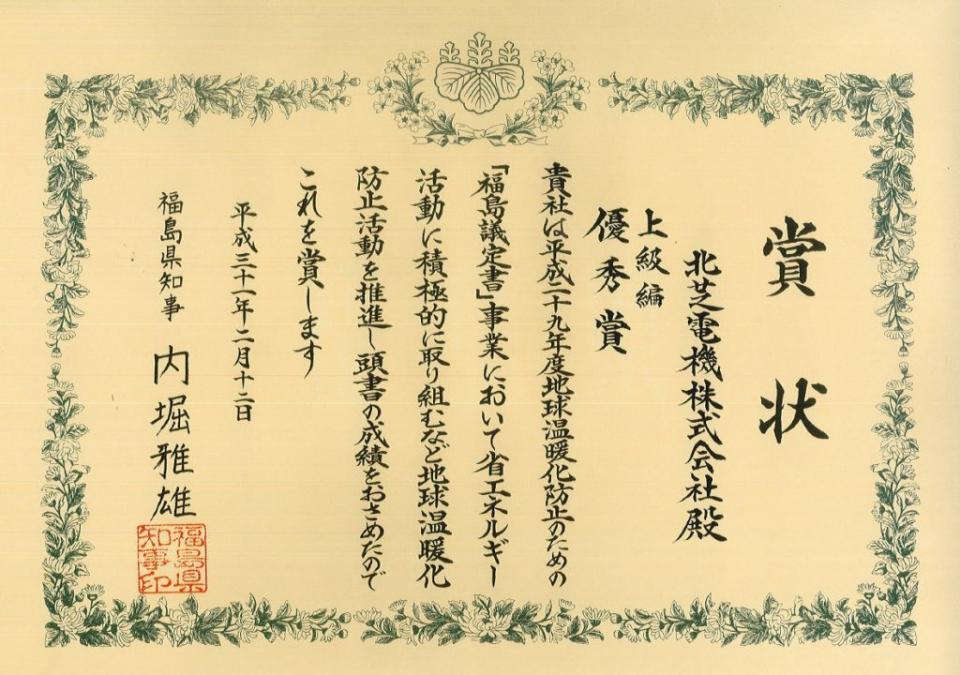 賞状
北芝電機株式会社殿
上級編
優秀賞
貴社は平成二十九年度地球温暖化防止のための
「福島議定書」事業において省エネルギー
活動に積極的に取り組むなど地球温暖化
防止活動を推進し頭書の成績をおさめたので
これを賞します
平成三十一年二月十二日
福島県知事 内堀雅雄
福島県
知事印